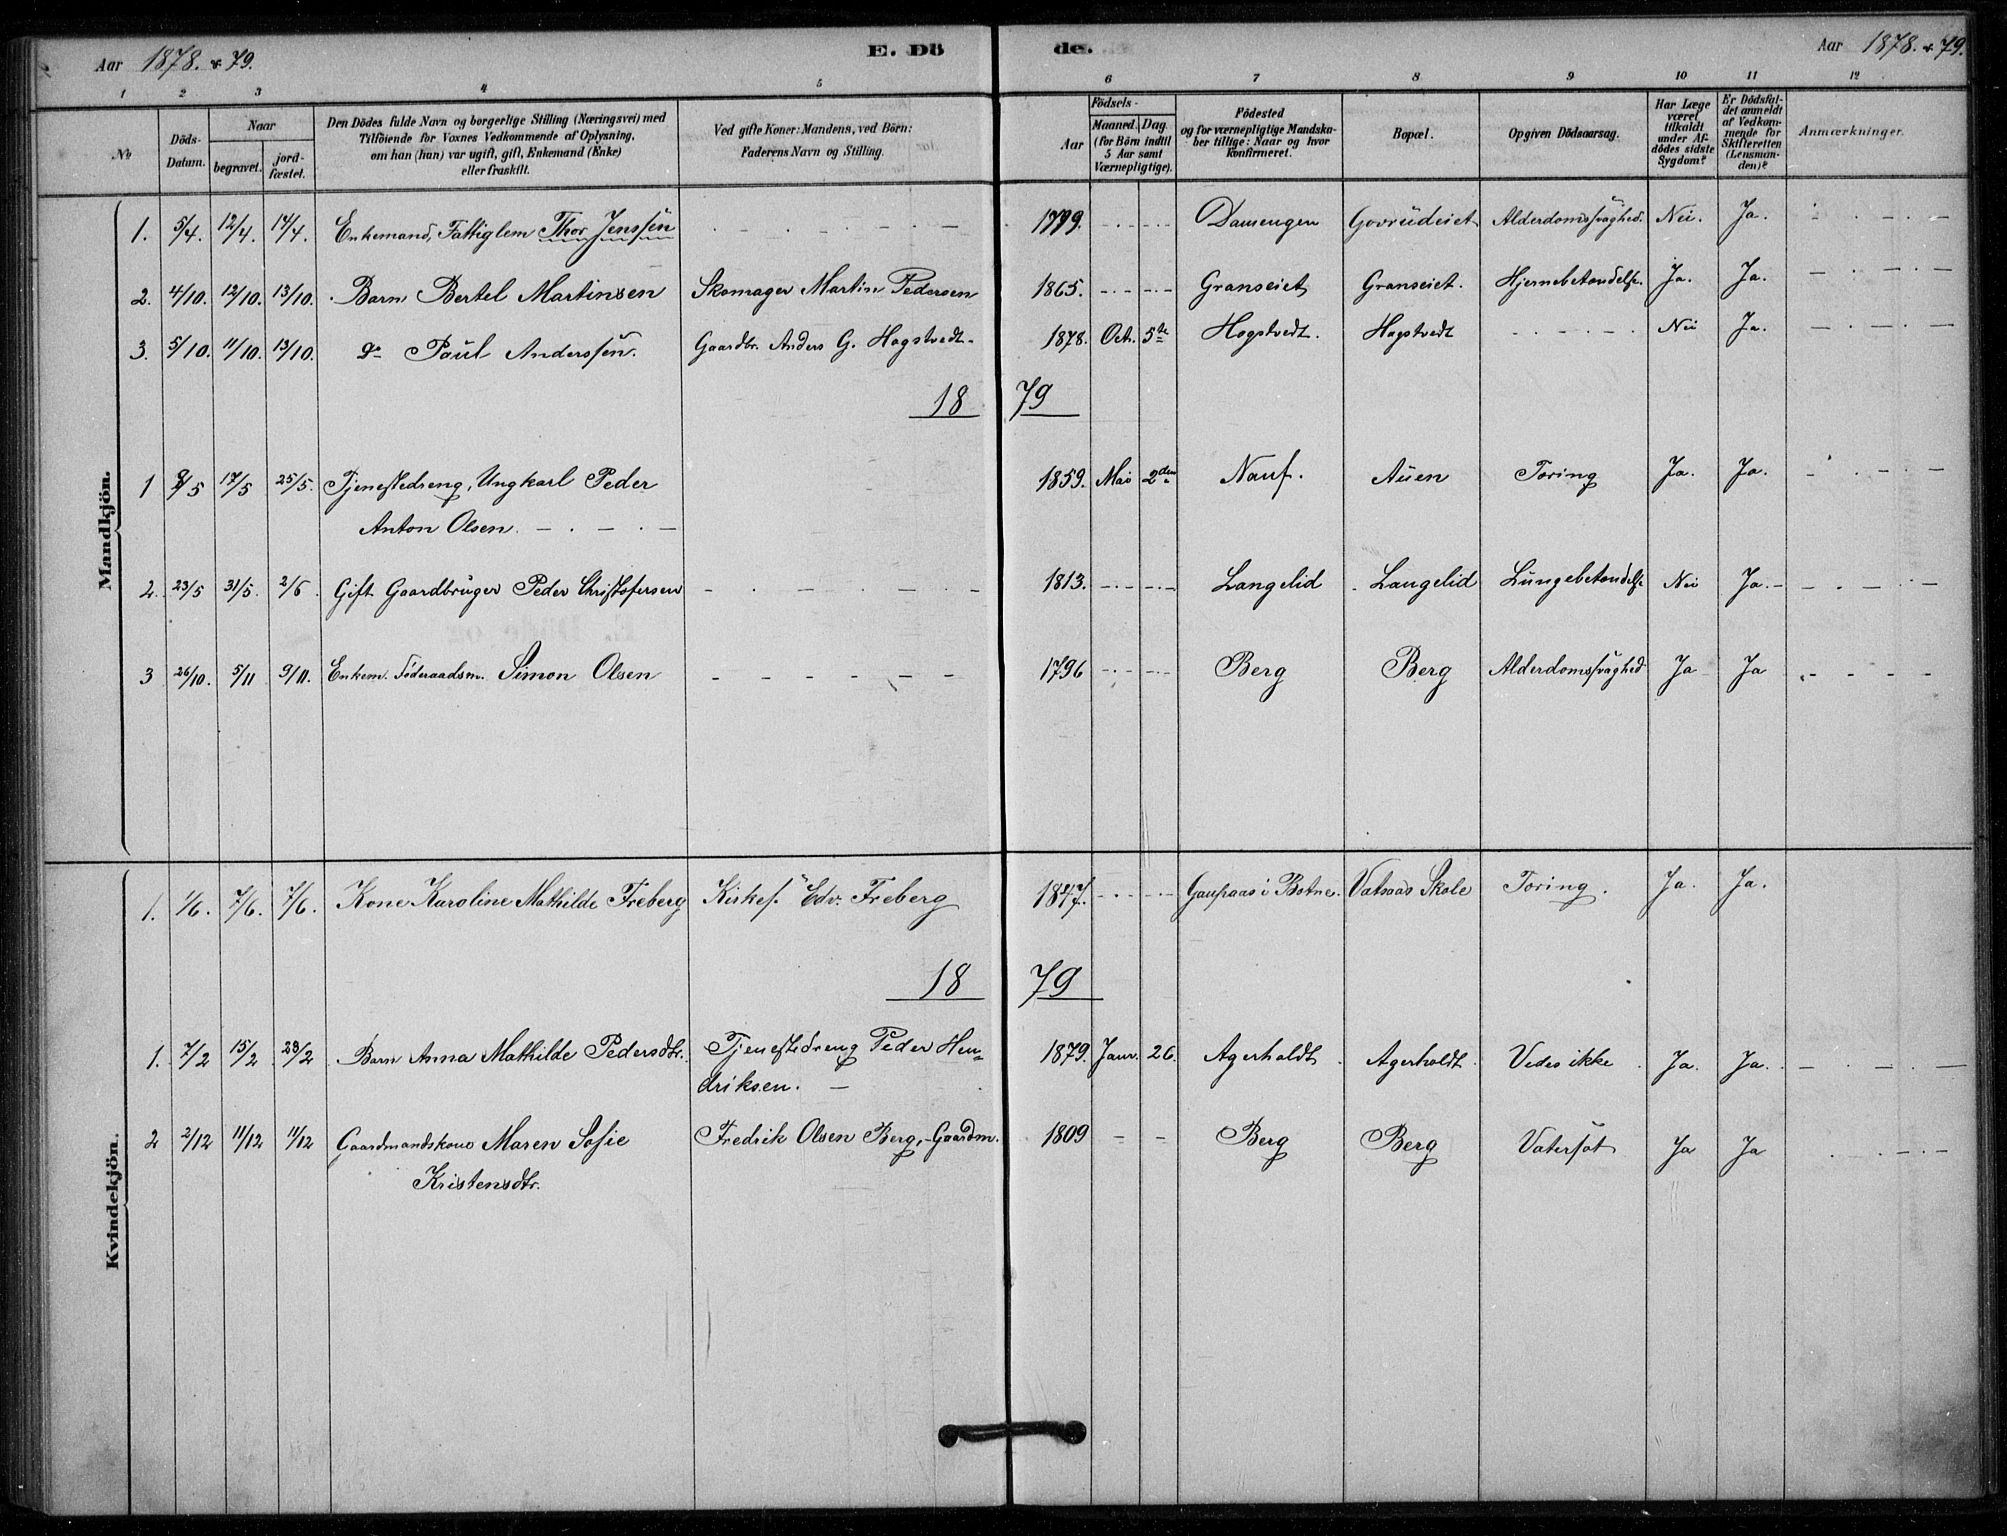 Aar 1878. & 79. E. Dö de. Aar 1878. & 79.
1 2 3 4 5 6 7 8 9 10 11 12
No Döds-Datum. Naar begravet. jord-fæstet. Den Dödes fulde Navn og borgerlige Stilling (Næringsvei) med Tilföiende for Voxnes Vedkommende af Oplysning, om han (hun) var ugift, gift, Enkemand (Enke) eller fraskilt. Ved gifte Koner: Mandens, ved Börn: Faderens Navn og Stilling. Aar Födsels- Maaned. Dag. (for Börn indtil 5 Aar samt Værnepligtige). Födested og for værnepligtige Mandskaber tillige: Naar og hvor Konfirmeret. Bopæl. Opgiven Dödsaarsag. Har Læge været tilkaldt under Afdödes sidste Sygdom? Er Dödsfaldet anmeldt af Vedkommende for Skifteretten (Lensmanden)? Anmærkninger.
Mandkjön.
1. 5/4. 12/4. 14/4. Enkemand, Fattiglem Thor Jenssen 1799. Damengen Govrudeiet Alderdomssvaghed. Nei. Ja.
2. 4/10. 12/10. 13/10. Barn Bertel Martinsen Skomager Martin Pedersen 1865. Granseiet Granseiet. Hjernebetændelse. Ja. Ja.
3. 5/10. 11/10. 13/10. Do Paul Anderssen. Gaardbr. Anders G. Hagstvedt. 1878. Oct. 5te Hogstvedt. Hagstvedt Nei Ja.
18 79
1 8/5 17/5 25/5. Tjenestedreng, Ungkarl Peder 1859. Mai 2den Nauf. Auen Tæring Ja. Ja.
Anton Olsen.
2. 23/5 31/5. 2/6. Gift Gaardbruger Peder Christofersen 1813. Langelid Langelid Lungebetændelse Nei Ja.
3 26/10. 5/11 9/11. Enkem. Föderaadsm. Simon Olsen 1796 Berg Berg Alderdomssvaghed Ja Ja
Kvindekjön.
1. 1/6. 7/6. 7/6. Kone Karoline Mathilde Freberg Kirkes. Edv. Freberg 1847. Gaupaas i Botne. Vataas Skole Tæring. Ja. Ja.
18 79
1. 7/2 15/2 23/2 Barn Anna Mathilde Pedersdtr. Tjenestedreng Peder Hen- 1879. Janr. 26. Agerholdt Agerholdt. Vedes ikke Ja. Ja.
driksen.
2 2/12 11/12 11/12 Gaardmandskone Maren Sofie Fredrik Olsen Berg, Gaardm. 1809 Berg Berg Vatersot Ja Ja
Kristensdtr.